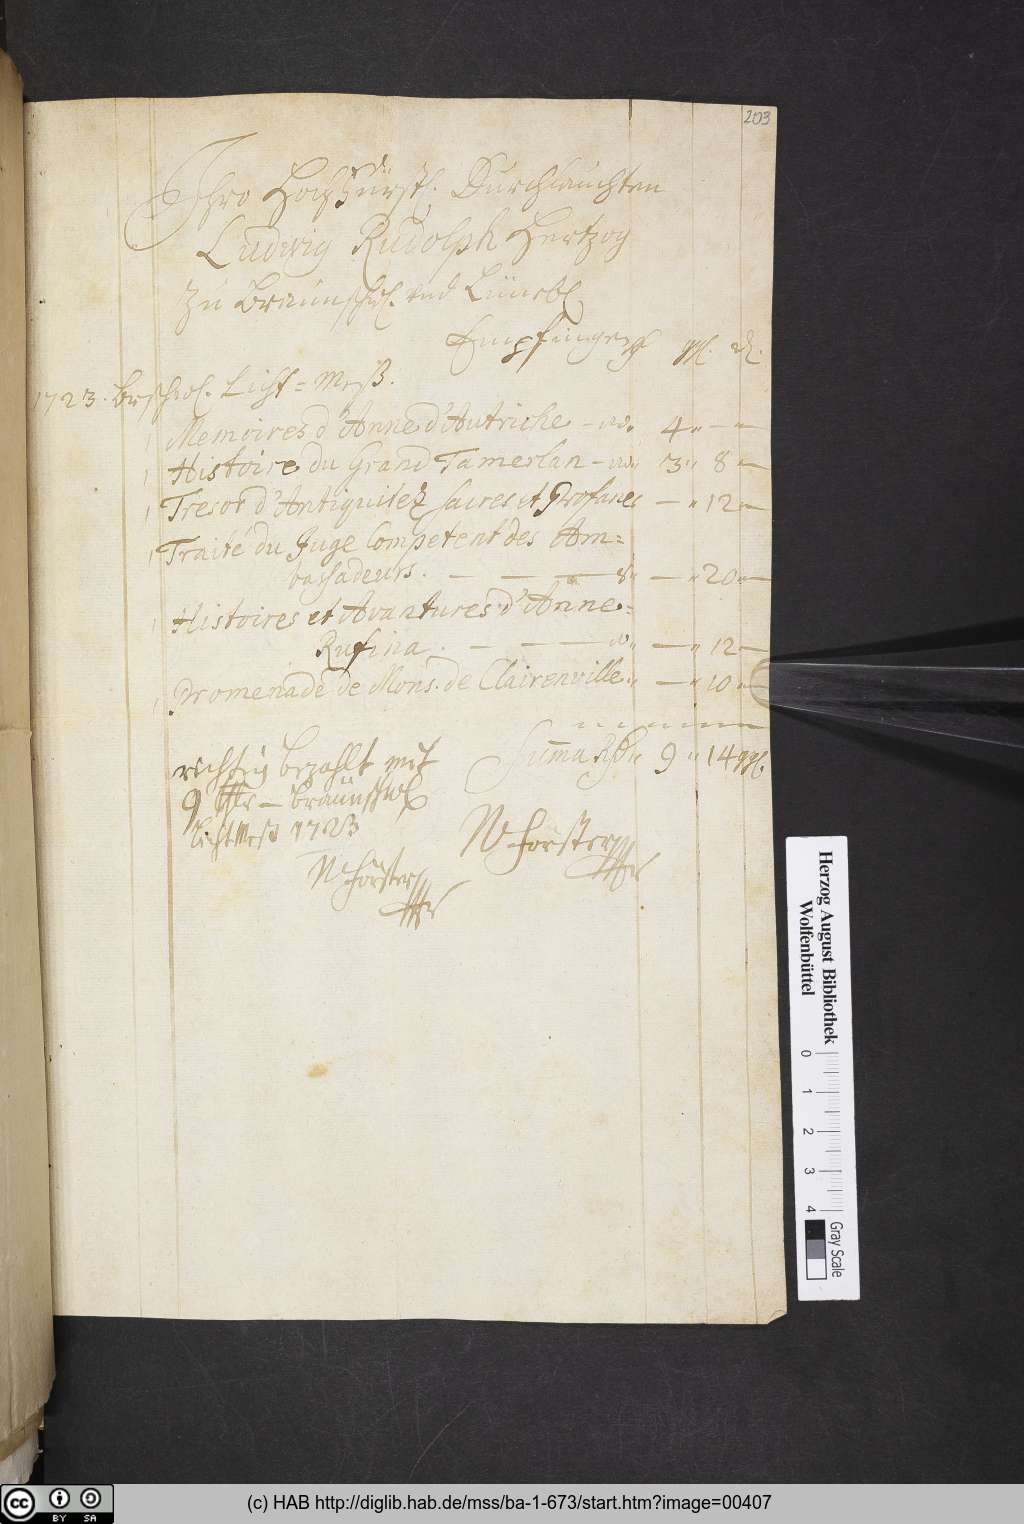 203
Ihro Hochfürstl. Durchlauchten
Ludwig Rudolph Hertzog
zu Braunschw. und Lünebl
Empfingen
1723. brschw. Licht=Meß.
1 Memoires d'Anne d'Autriche 4 " — "
1 Histoire du Grand Tamerlan 3 " 8 "
1 Tresor d'Antiquitez sacres et Profanes — " 12 "
1 Traité du Juge Competent des Am=
bassadeurs. — — — — " 20 "
1 Histoires et Avantures d'Anne=
Rufina. — — — " 12 —
1 Promenade de Mons. de Clairenville — " 10 "
Suma 9 " 14
richtig bezahlt mit
9 — braunschw
LichtMeß 1723
N Förster
N Förster
Herzog August Bibliothek
Wolfenbüttel
0 1 2 3 4
Gray Scale
CC BY SA
(c) HAB http://diglib.hab.de/mss/ba-1-673/start.htm?image=00407